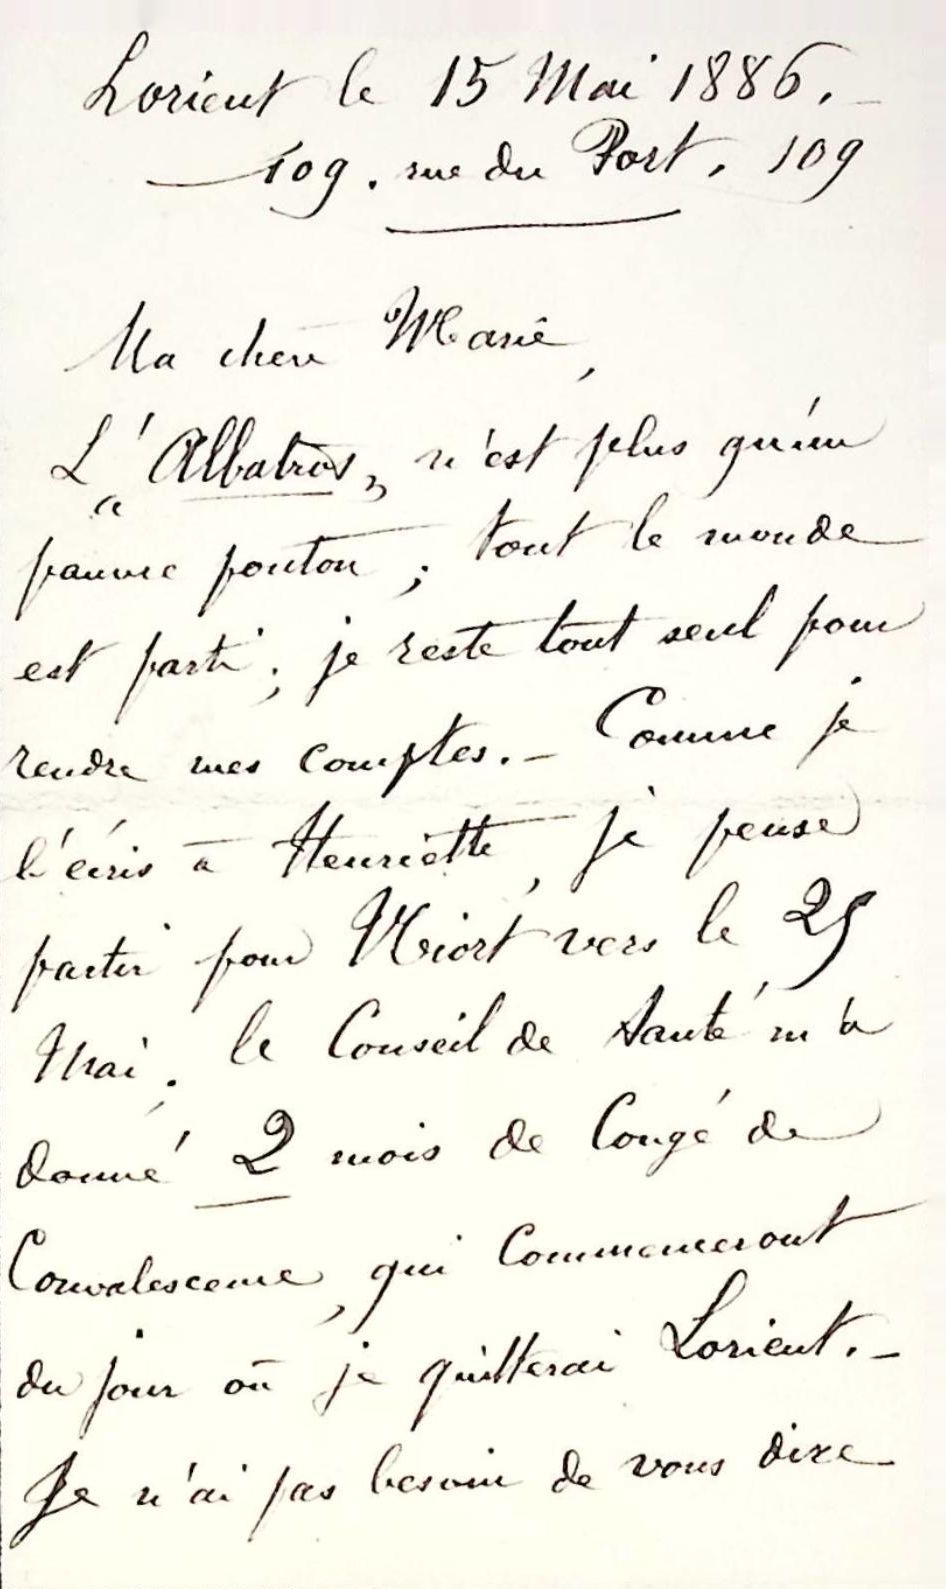 Lorient le 15 Mai 1886. _
109. rue du Port, 109
Ma chère Marie,
L'"Albatros" n'est plus qu'un
pauvre ponton; tout le monde
est parti; je reste tout seul pour
rendre mes comptes. _ Comme je
l'écris à Henriette, je pense
partir pour Niort vers le 25
Mai; le Conseil de Santé m'a
donné 2 mois de Congé de
Convalescence, qui commenceront
du jour où je quitterai Lorient. _
Je n'ai pas besoin de vous dire